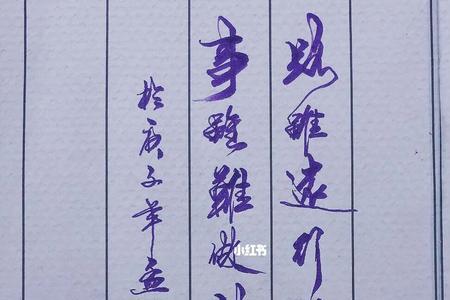 路虽远行
事虽難做
於庚子年孟
小红书